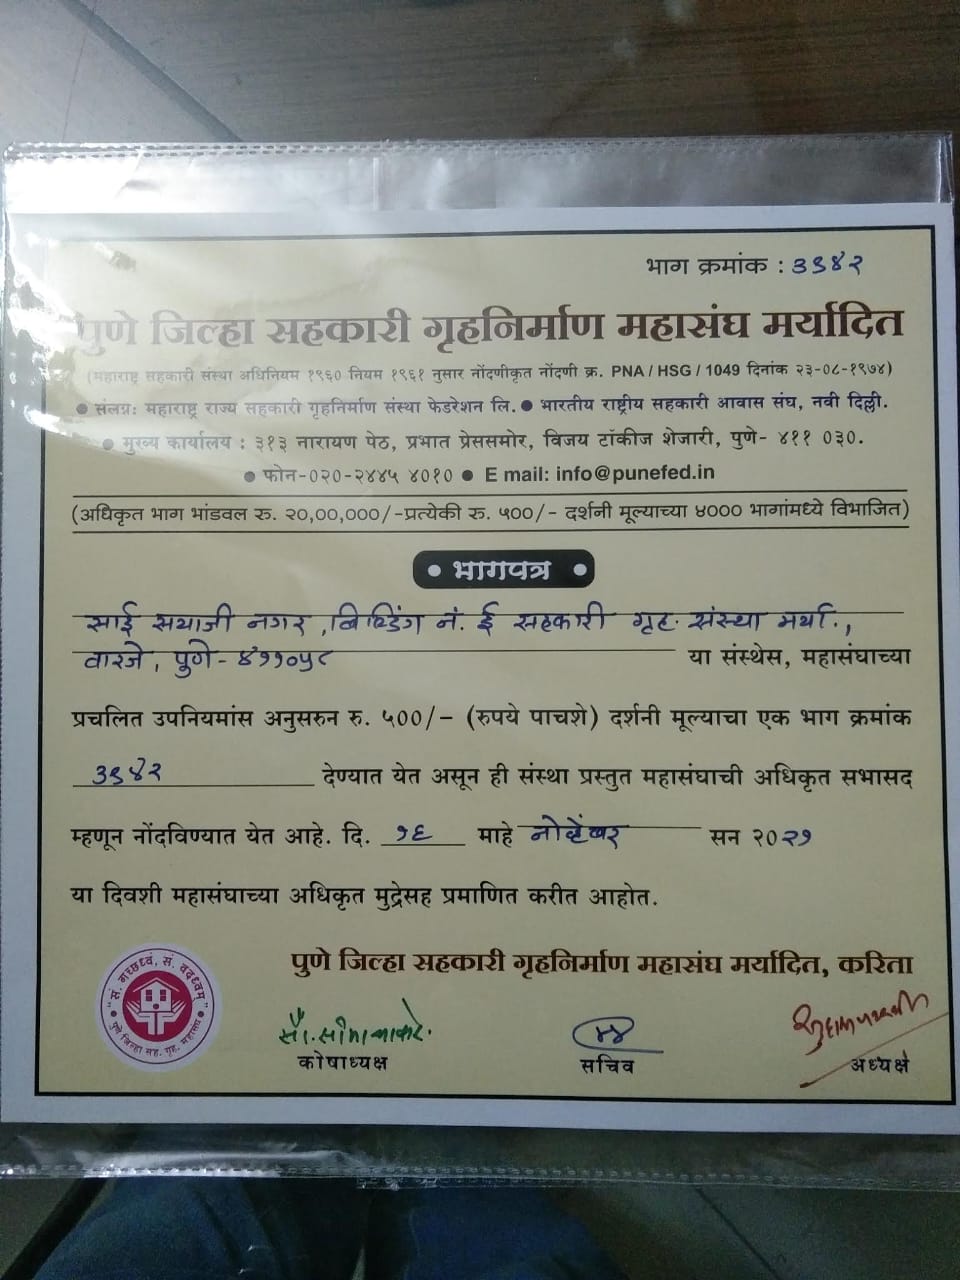 भाग क्रमांक : ३९४२
पुणे जिल्हा सहकारी गृहनिर्माण महासंघ मर्यादित
(महाराष्ट्र सहकारी संस्था अधिनियम १९६० नियम १९६१ नुसार नोंदणीकृत नोंदणी क्र. PNA / HSG / 1049 दिनांक २३-०८-१९७४)
● संलग्नः महाराष्ट्र राज्य सहकारी गृहनिर्माण संस्था फेडरेशन लि. ● भारतीय राष्ट्रीय सहकारी आवास संघ, नवी दिल्ली.
● मुख्य कार्यालय : ३१३ नारायण पेठ, प्रभात प्रेससमोर, विजय टॉकीज शेजारी, पुणे- ४११ ०३०.
● फोन-०२०-२४४५ ४०१० ● E mail: info@punefed.in
(अधिकृत भाग भांडवल रु. २०,००,०००/-प्रत्येकी रु. ५००/- दर्शनी मूल्याच्या ४००० भागांमध्ये विभाजित)
● भागपत्र ●
साई सयाजी नगर, बिल्डिंग नं. ई सहकारी गृह. संस्था मर्या.,
वारजे, पुणे - ४११०५८ या संस्थेस, महासंघाच्या
प्रचलित उपनियमांस अनुसरुन रु. ५००/- (रुपये पाचशे) दर्शनी मूल्याचा एक भाग क्रमांक
३९४२ देण्यात येत असून ही संस्था प्रस्तुत महासंघाची अधिकृत सभासद
म्हणून नोंदविण्यात येत आहे. दि. १६ माहे नोव्हेंबर सन २०२१
या दिवशी महासंघाच्या अधिकृत मुद्रेसह प्रमाणित करीत आहोत.
पुणे जिल्हा सहकारी गृहनिर्माण महासंघ मर्यादित, करिता
सं. गच्छध्वं, सं. वदध्वम्
पुणे जिल्हा सह. गृह. महासंघ
कोषाध्यक्ष सचिव अध्यक्ष